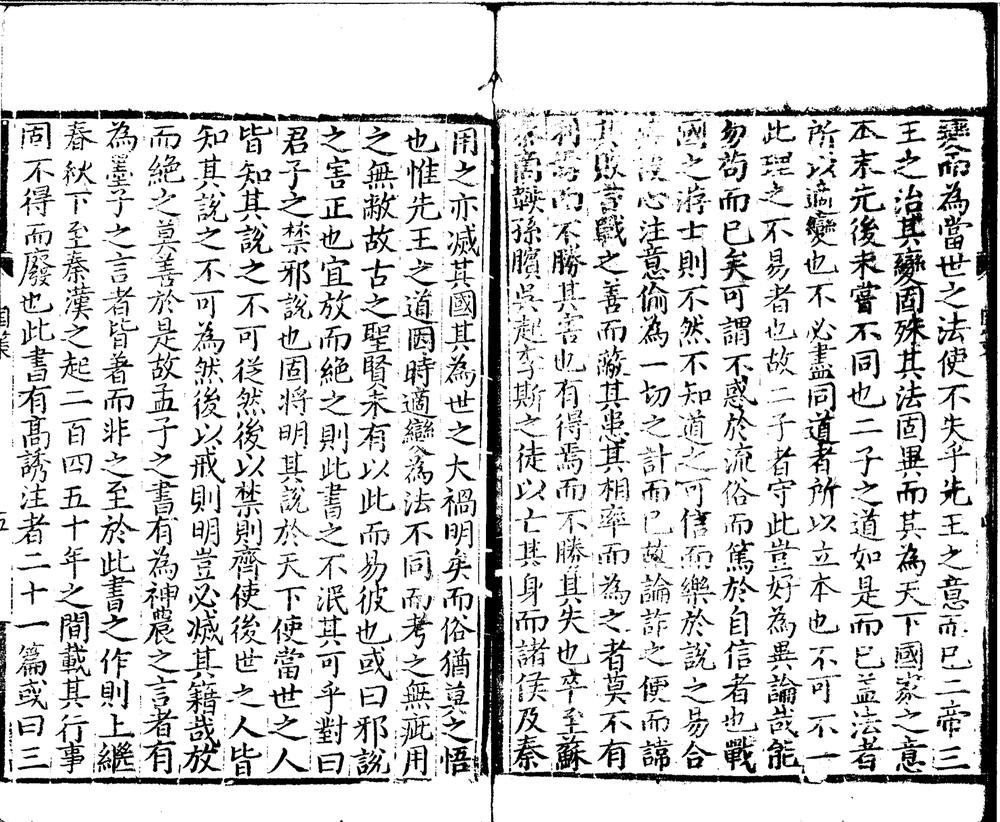 變而為當世之法使不失乎先王之意而已二帝三
王之治其變固殊其法固異而其為天下國家之意
本末先後未嘗不同也二子之道如是而已盖法者
所以適變也不必盡同道者所以立本也不可不一
此理之不易者也故二子者守此豈好為異論哉能
勿苟而已矣可謂不惑於流俗而篤於自信者也戰
國之游士則不然不知道之可信而樂於說之易合
其設心注意偷為一切之計而已故論詐之便而諱
其敗言戰之善而蔽其患其相率而為之者莫不有
利焉而不勝其害也有得焉而不勝其失也卒至蘇
秦商鞅孫臏吳起李斯之徒以亡其身而諸侯及秦
用之亦滅其國其為世之大禍明矣而俗猶莫之悟
也惟先王之道因時適變為法不同而考之無疵用
之無敝故古之聖賢未有以此而易彼也或曰邪說
之害正也宜放而絕之則此書之不泯其可乎對曰
君子之禁邪說也固將明其說於天下使當世之人
皆知其說之不可從然後以禁則齊使後世之人皆
知其說之不可為然後以戒則明豈必滅其籍哉放
而絕之莫善於是故孟子之書有為神農之言者有
為墨子之言者皆著而非之至於此書之作則上繼
春秋下至秦漢之起二百四五十年之間載其行事
固不得而廢也此書有高誘注者二十一篇或曰三